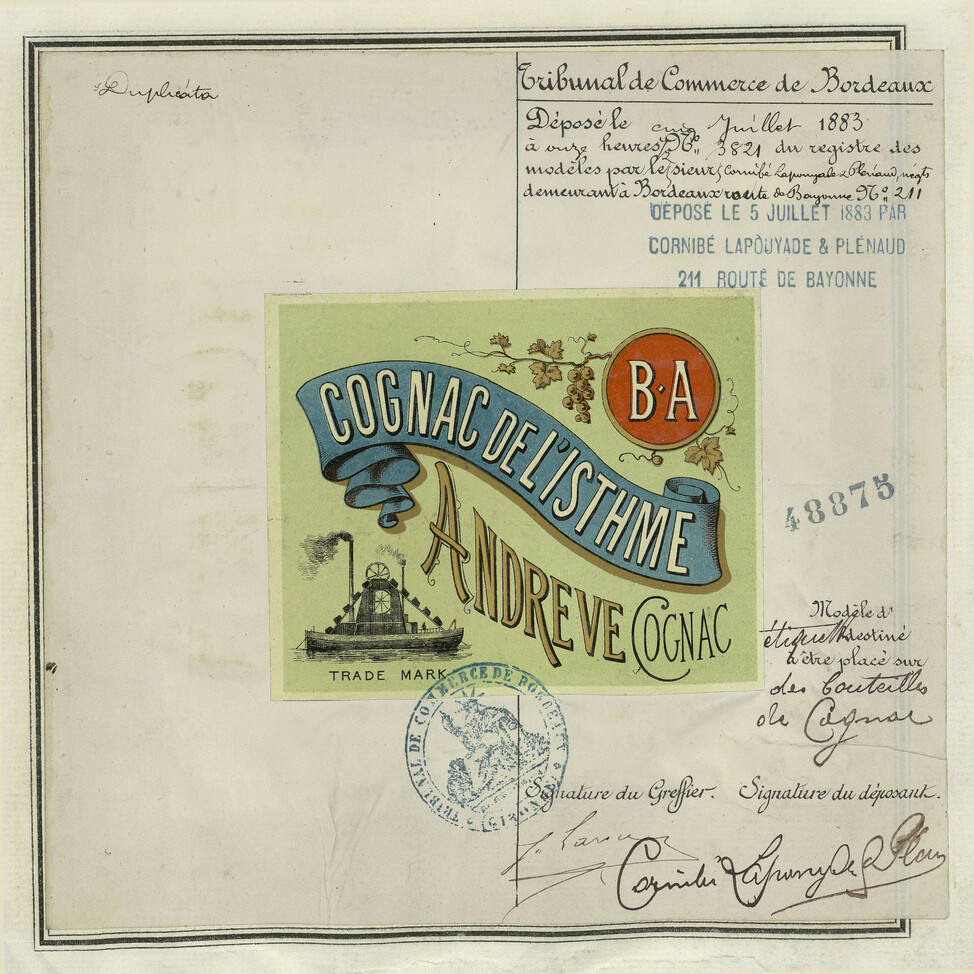 Duplicata
Tribunal de Commerce de Bordeaux
Déposé le cinq Juillet 1883
à onze heures Nº 3821 du registre des
modèles par le sieur Cornibé Lapouyade & Plénaud, négts
demeurant à Bordeaux route de Bayonne Nº 211
DÉPOSÉ LE 5 JUILLET 1883 PAR
CORNIBÉ LAPOUYADE & PLÉNAUD
211 ROUTE DE BAYONNE
B·A
COGNAC DE L'ISTHME
ANDREVE COGNAC
TRADE MARK
48875
Modèle d'
étiquette destiné
à être placé sur
des bouteilles
de Cognac
TRIBUNAL DE COMMERCE DE BORDEAUX
(GIRONDE)
Signature du Greffier. Signature du déposant.
Cornibé Lapouyade & Plen